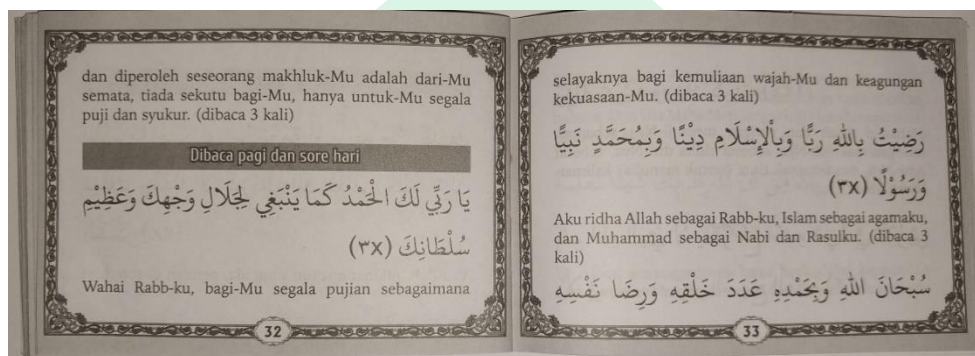 dan diperoleh seseorang makhluk-Mu adalah dari-Mu
semata, tiada sekutu bagi-Mu, hanya untuk-Mu segala
puji dan syukur. (dibaca 3 kali)
Dibaca pagi dan sore hari
يَا رَبِّي لَكَ الْحَمْدُ كَمَا يَنْبَغِي لِجَلَالِ وَجْهِكَ وَعَظِيْمِ
سُلْطَانِكَ (٣x)
Wahai Rabb-ku, bagi-Mu segala pujian sebagaimana
32
selayaknya bagi kemuliaan wajah-Mu dan keagungan
kekuasaan-Mu. (dibaca 3 kali)
رَضِيْتُ بِاللهِ رَبًّا وَبِاْلإِسْلَامِ دِيْنًا وَبِمُحَمَّدٍ نَبِيًّا
وَرَسُوْلًا (٣x)
Aku ridha Allah sebagai Rabb-ku, Islam sebagai agamaku,
dan Muhammad sebagai Nabi dan Rasulku. (dibaca 3
kali)
سُبْحَانَ اللهِ وَبِحَمْدِهِ عَدَدَ خَلْقِهِ وَرِضَا نَفْسِهِ
33